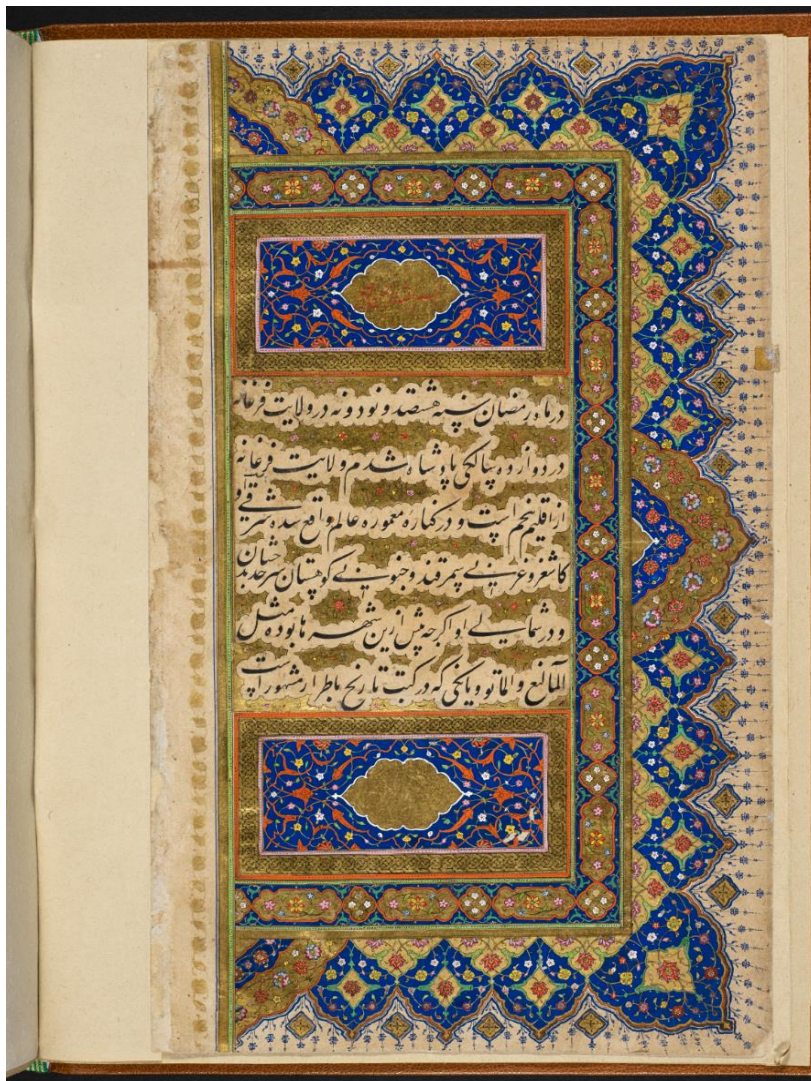 در ماه رمضان سنه هشتصد و نود و نه در ولایت فرغانه
در دوازده سالگی پادشاه شدم ولایت فرغانه
از اقلیم پنجم است و در کناره معموره عالم واقع شده شرقی
کاشغر و غربی سمرقند و جنوبی کوهستان سرحد بدخشان
و در شمالی او اگرچه پیش ازین شهرها بوده مثل
المالغ و الماتو و یانکی که در کتب تاریخ باطرار مشهور است